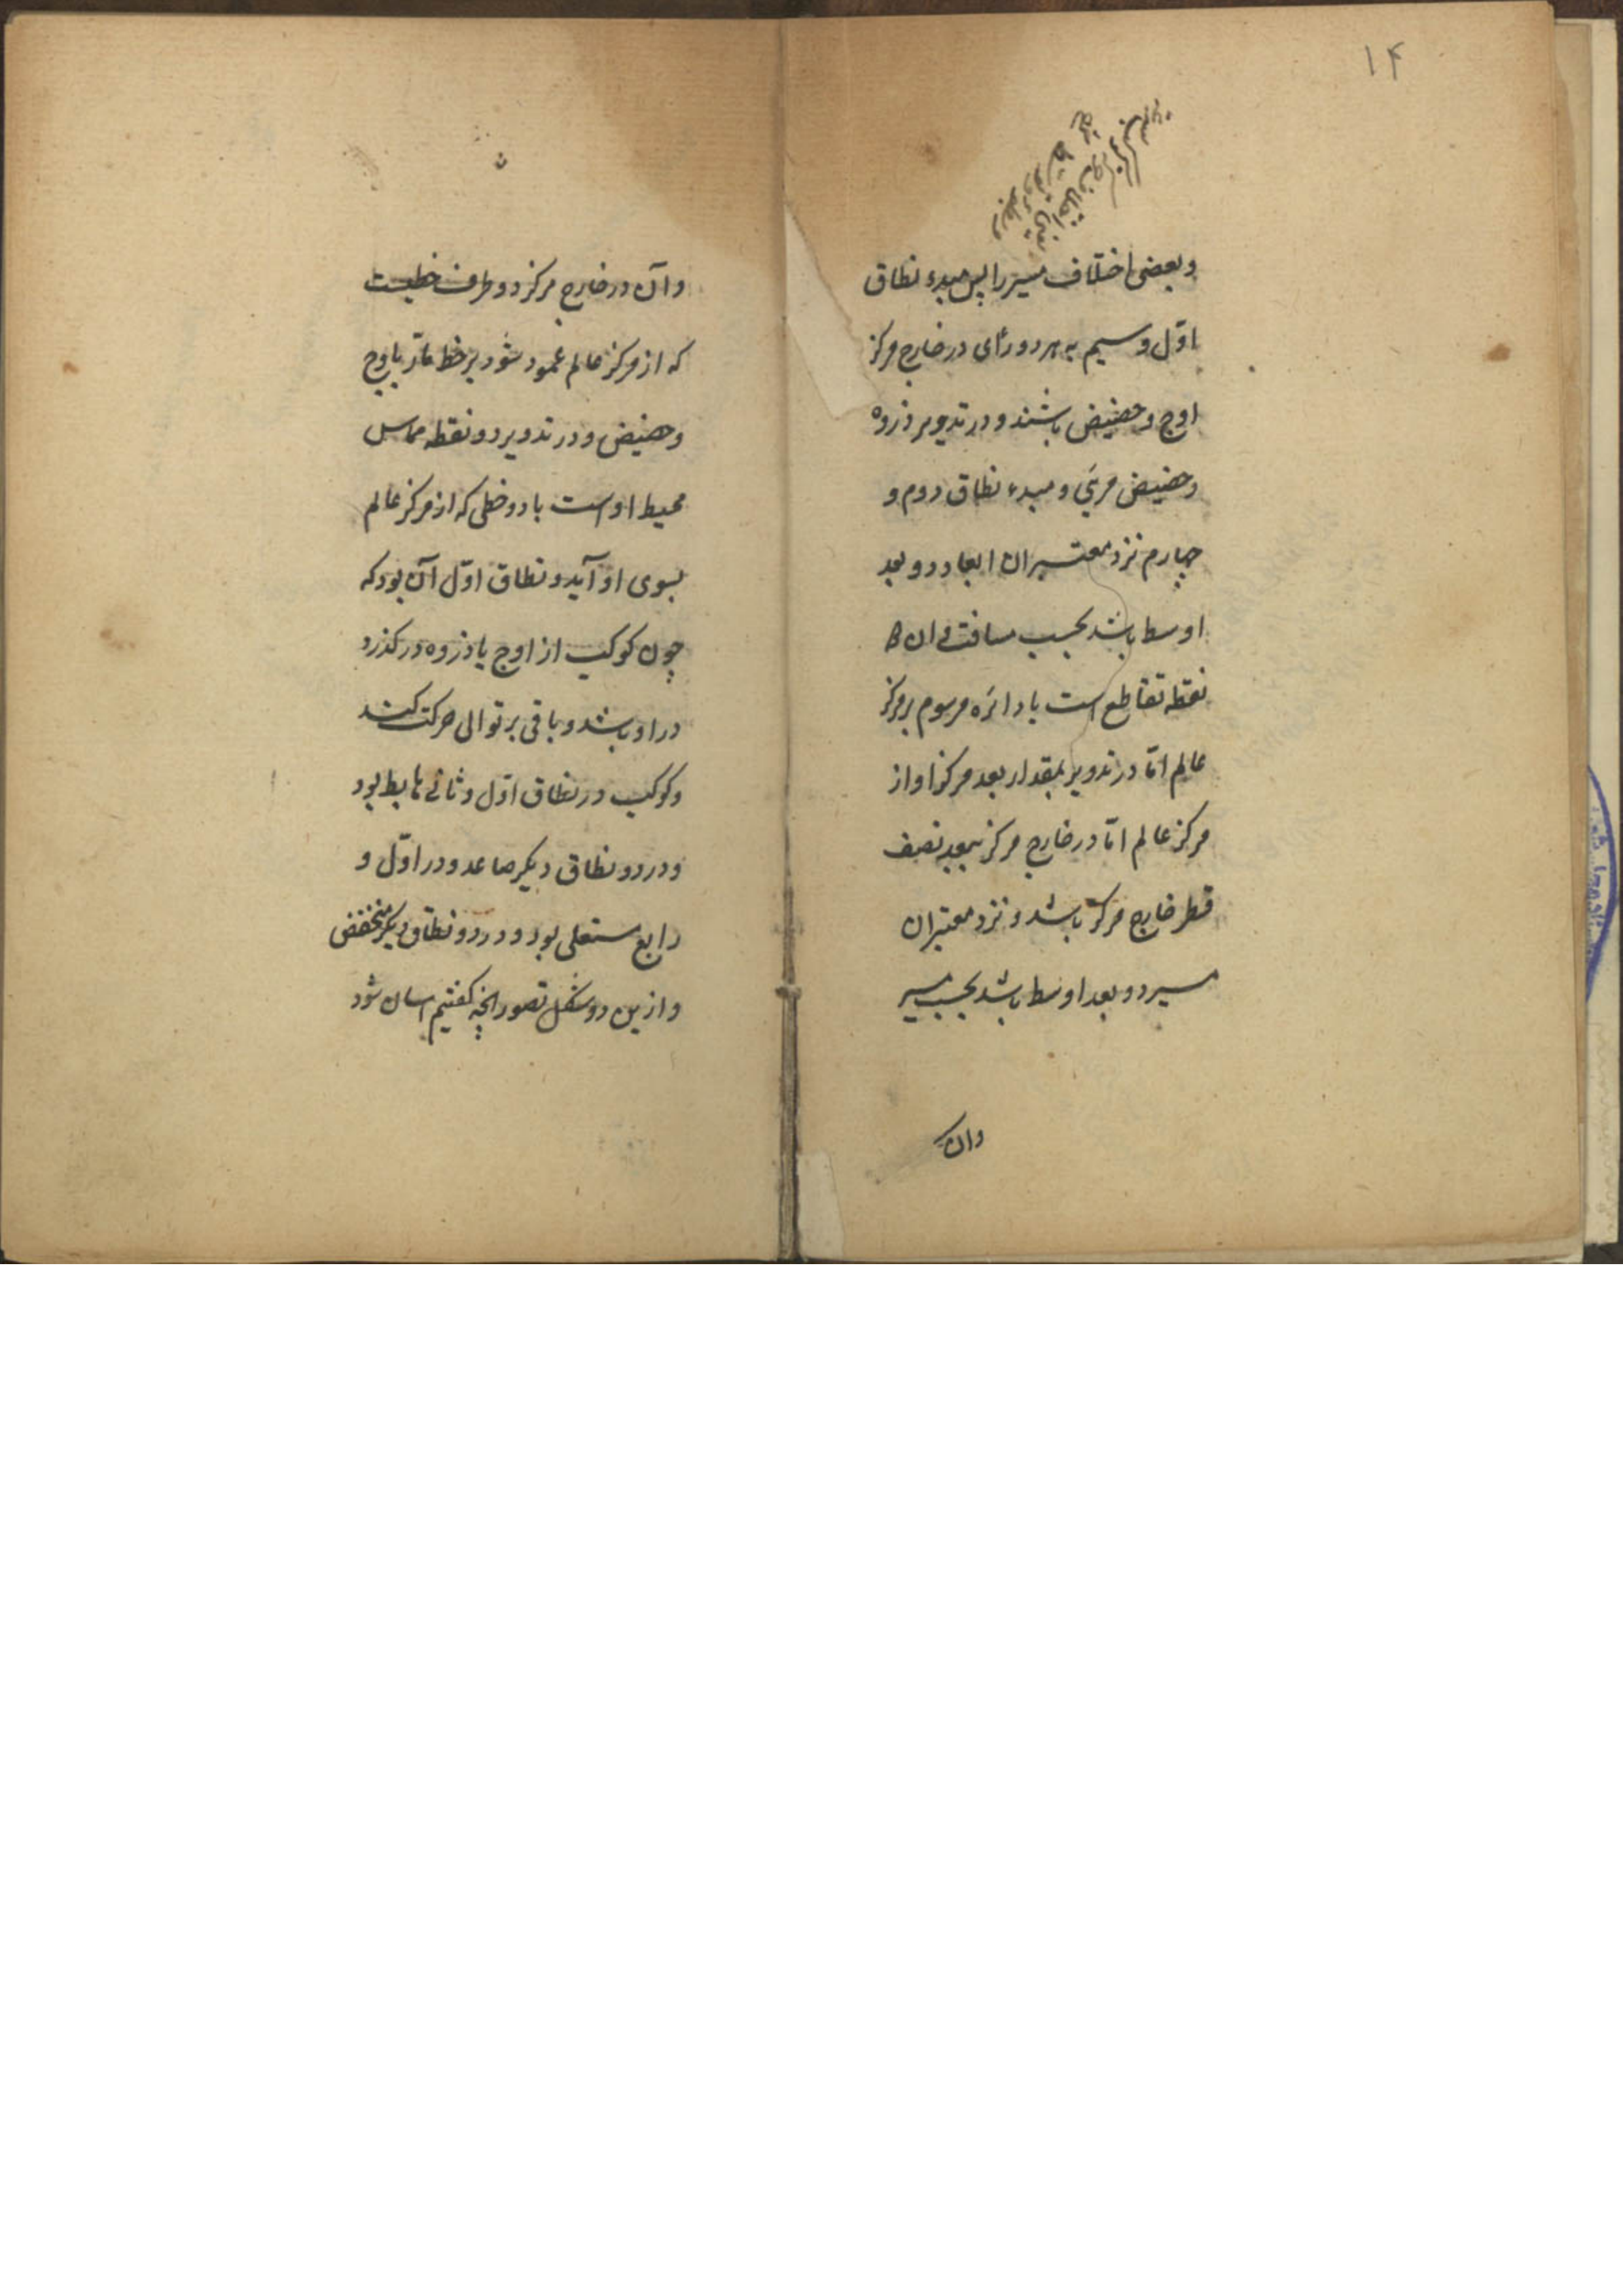 ۱۴
وبعضی اختلاف مسیر را پس مبدء نطاق
اوّل وسیم به هر دو رأی در خارج مرکز
اوج وحضیض باشند و در تدویر ذروه
وحضیض مرئی و مبدء نطاق دوم و
چهارم نزد معتبران ابعاد دو بعد
اوسط باشد بحسب مسافت و ان
نقطه تقاطع است با دائره مرسوم بر مرکز
عالم امّا در تدویر بمقدار بعد مرکز او از
مرکز عالم امّا در خارج مرکز ببعد نصف
قطر خارج مرکز باشد و نزد معتبران
مسیر دو بعد اوسط باشد بحسب مسیر
وان
وآن در خارج مرکز دو طرف خطیست
که از مرکز عالم عمود شود بر خط مارّ باوج
وحضیض و در تدویر دو نقطه مماس
محیط اوست با دو خطی که از مرکز عالم
بسوی او آید و نطاق اوّل آن بود که
چون کوکب از اوج یا ذروه درکذرد
در او باشد و باقی بر توالی حرکت کند
وکوکب در نطاق اوّل و ثانی هابط بود
ودر دو نطاق دیکر صاعد و در اوّل و
رابع مستعلی بود و در دو نطاق دیکر منخفض
وازین دو شکل تصور انچه کفتیم اسان شود